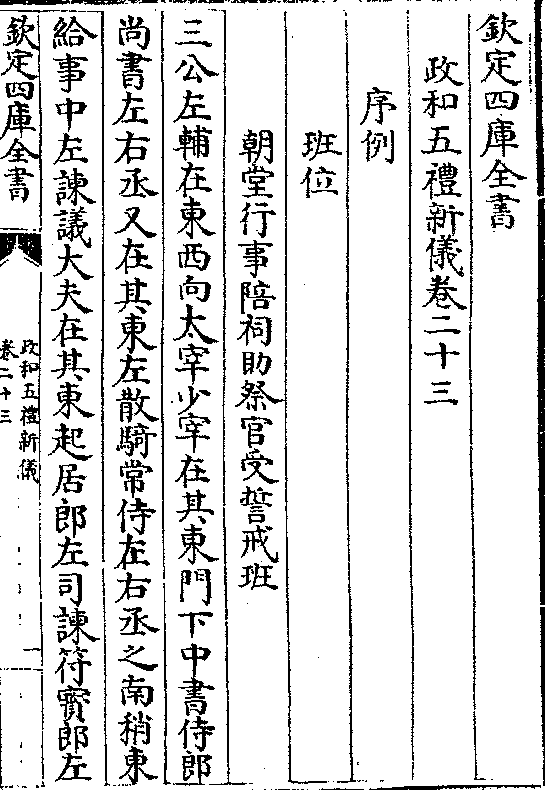 欽定四庫全書
政和五禮新儀卷二十三
序例
班位
朝堂行事陪祠助祭官受誓戒班
三公左輔在東西向太宰少宰在其東門下中書侍郎
尚書左右丞又在其東左散騎常侍在右丞之南稍東
給事中左諫議大夫在其東起居郎左司諫符寶郎左
欽定四庫全書
政和五禮新儀
卷二十三
一